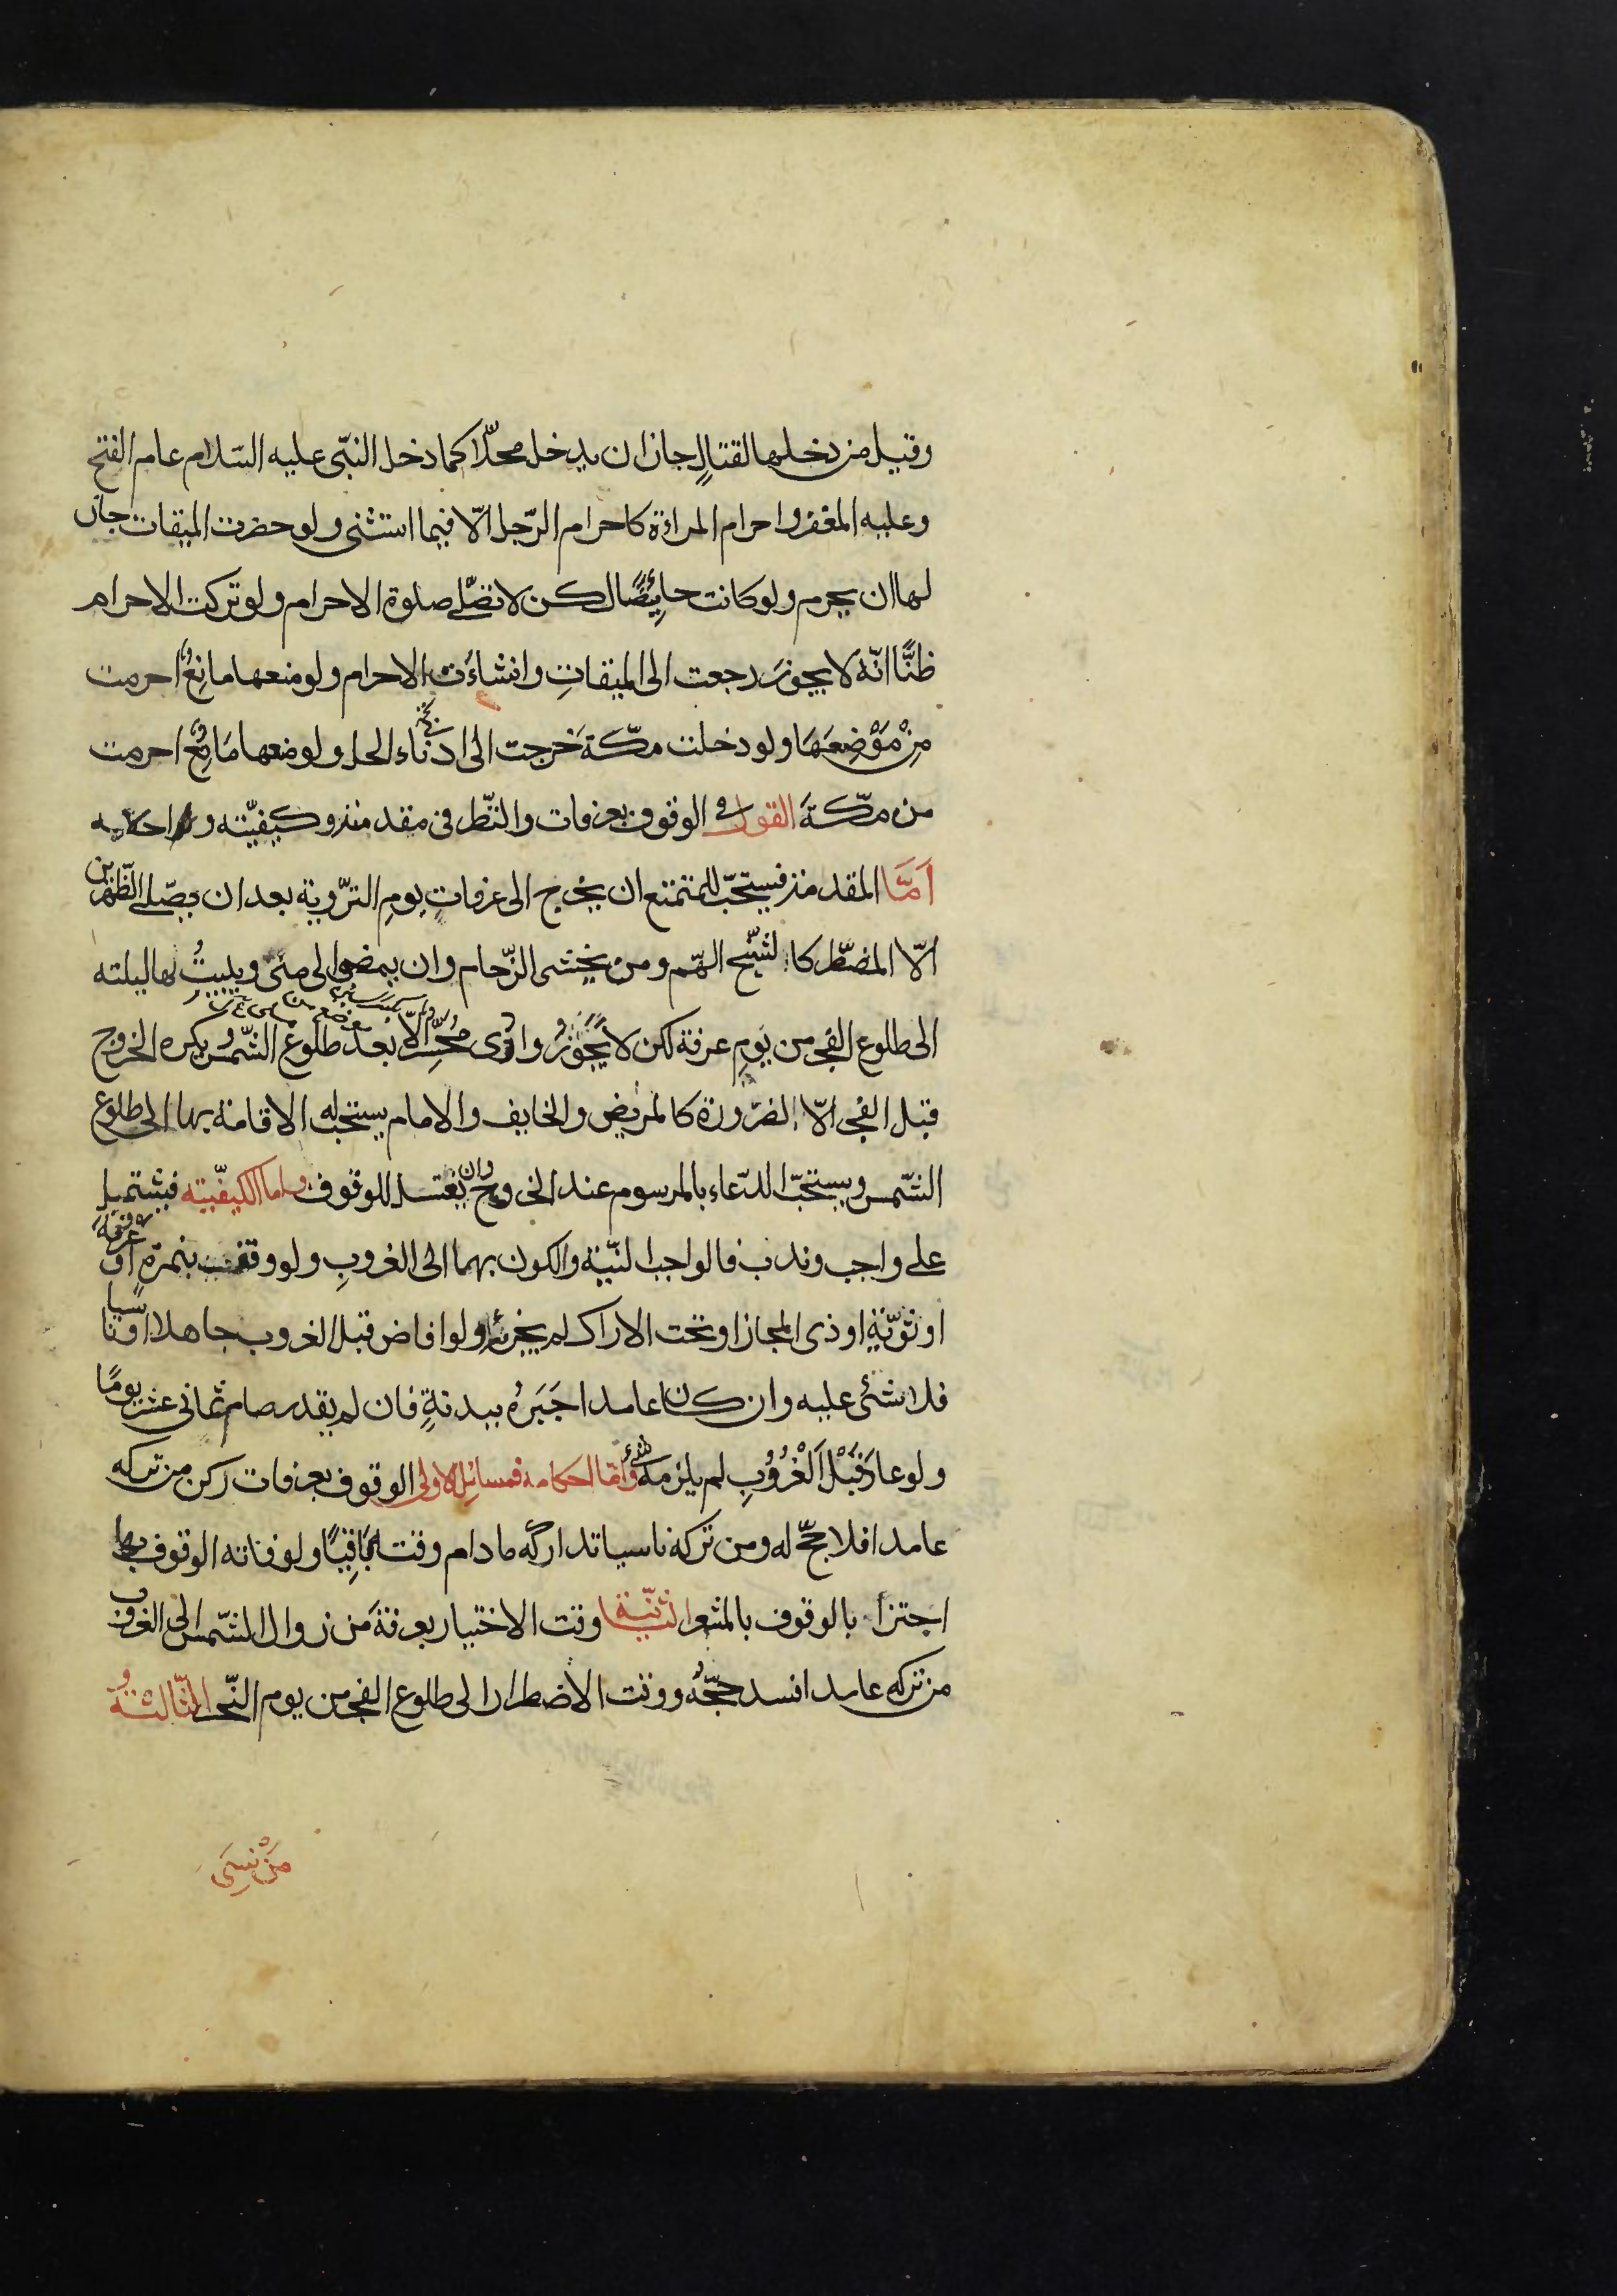 وقيل من دخلها لقتالٍ جاز ان يدخل محلّا كما دخل النبّى عليه السّلام عام الفتح
وعليه المغفر واحرام المراءة كاحرام الرّجل الّا فيما استثنى ولو حضرت الميقات جاز
لها ان يحرم ولو كانت حائِضًا لكن لا تصّلى صلوة الاحرام ولو تركت الاحرام
ظنًّا انّه لا يجوز رجعت الى الميقاتِ وانشاءَت الاحرام ولو منعها مانِعٌ احرمت
مِنْ مَوْضِعَهَا ولو دخلت مكّةَ خرجت الى ادناء الحل ولو منعها مَانِعٌ احرمت
من مكّةَ القول فى الوقوف بعرفات والنّظر فى مقدمته وكيفيّته و احكامه
اَمَّا المقدمته فيستحبّ للمتمتع ان يخرج الى عرفاتٍ يومِ التّروية بعد ان يصّلى الظّهرين
الّا المضطّر كالشّيخ الهّم ومن يخشى الزّحام وان يمضى الى منىً ويبيتُ بها ليلته
الى طلوع الفجر من يَومِ عرفة لكن لا يَجُوزُ وادى مُحسِّر الّا بعد طلوع الشّمس ويكره الخروج
قبل الفجر الّا الضرورة كالمريض والخايف والامام يستحب له الاقامة بها الى طلوع
الشّمس ويستحبّ الدّعاء بالمرسوم عند الخروج وان يغتسل للوقوف واما الكيفيّته فيشتمل
على واجب وندب فالواجب النّيّة والكون بهما الى الغروبِ ولو وقفت بنمرّةٍ او عرفة
او ثوّيّةٍ او ذى المجاز او تحت الاراك لم يجزئه ولو افاض قبل الغروب جاهلا او ناسيا
فلا شئى عليه وان كان عامدا جَبَرُه ببدنةٍ فان لم يقدر صام ثمانى عشر يومًا
ولو عادَ قَبْلَ اَلْغُرُوُبِ لم يلزمه شئ وامّا احكامه فمسائِل الاولى الوقوف بعرفات ركن من تركه
عامدا فلا حجّ له ومن تركه ناسيا تداركه ما دام وقته باقِيًا ولو فاته الوقوف بها
اجتزأ بالوقوف بالمشعر الثانّية وقت الاختيار بعرفةَ من زوال الشّمس الى الغروب
من تركه عامدا فسد حجّهُ ووقت الاضطرار الى طلوع الفجر من يوم النّحر الثّالثةُ
مَنْ نسِىَ